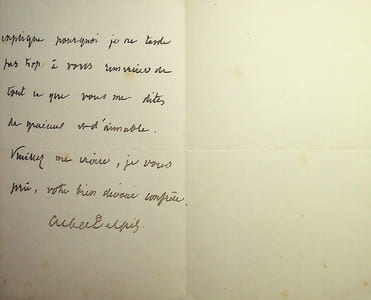 explique pourquoi je ne tarde
pas trop à vous remercier de
tout ce que vous me dites
de gracieux et d'aimable.
Veuillez me croire, je vous
prie, votre bien dévoué confrère.
Albert Delpit